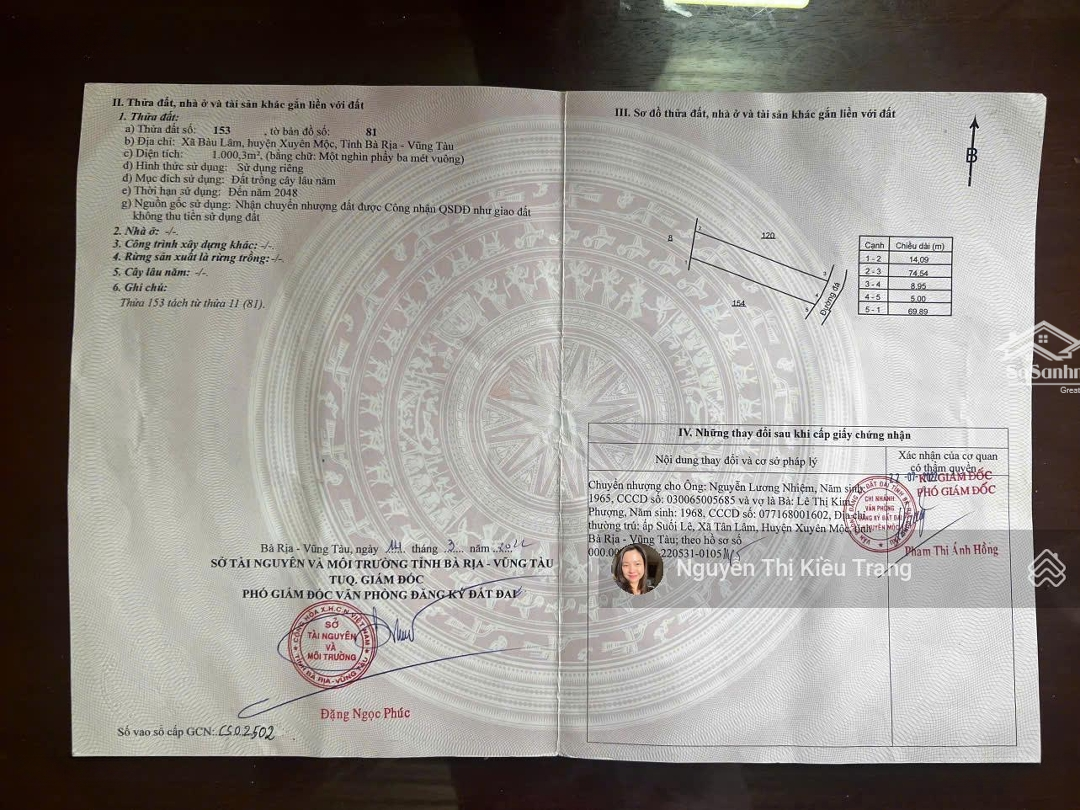 II. Thửa đất, nhà ở và tài sản khác gắn liền với đất
1. Thửa đất:
a) Thửa đất số: 153 , tờ bản đồ số: 81
b) Địa chỉ: Xã Bàu Lâm, huyện Xuyên Mộc, Tỉnh Bà Rịa - Vũng Tàu
c) Diện tích: 1.000,3m², (bằng chữ: Một nghìn phẩy ba mét vuông)
d) Hình thức sử dụng: Sử dụng riêng
đ) Mục đích sử dụng: Đất trồng cây lâu năm
e) Thời hạn sử dụng: Đến năm 2048
g) Nguồn gốc sử dụng: Nhận chuyển nhượng đất được Công nhận QSDĐ như giao đất
không thu tiền sử dụng đất
2. Nhà ở: -/-.
3. Công trình xây dựng khác: -/-.
4. Rừng sản xuất là rừng trồng: -/-.
5. Cây lâu năm: -/-.
6. Ghi chú:
Thửa 153 tách từ thửa 11 (81).
Bà Rịa - Vũng Tàu, ngày 14 tháng 3 năm
SỞ TÀI NGUYÊN VÀ MÔI TRƯỜNG TỈNH BÀ RỊA - VŨNG TÀU
TUQ. GIÁM ĐỐC
PHÓ GIÁM ĐỐC VĂN PHÒNG ĐĂNG KÝ ĐẤT ĐAI
CỘNG HÒA X.H.C.N VIỆT NAM
SỞ
TÀI NGUYÊN
VÀ
MÔI TRƯỜNG
TỈNH BÀ RỊA - VŨNG TÀU
Đặng Ngọc Phúc
Số vào sổ cấp GCN: CS02502
III. Sơ đồ thửa đất, nhà ở và tài sản khác gắn liền với đất
B
8
2
120
3
4
5
154
Đường đá
Cạnh Chiều dài (m)
1 - 2 14,09
2 - 3 74,54
3 - 4 8,95
4 - 5 5,00
5 - 1 69,89
IV. Những thay đổi sau khi cấp giấy chứng nhận
Nội dung thay đổi và cơ sở pháp lý
Xác nhận của cơ quan
có thẩm quyền
Chuyển nhượng cho Ông: Nguyễn Lương Nhiệm, Năm sinh:
1965, CCCD số: 030065005685 và vợ là Bà: Lê Thị Kim
Phượng, Năm sinh: 1968, CCCD số: 077168001602, Địa chỉ
thường trú: ấp Suối Lê, Xã Tân Lâm, Huyện Xuyên Mộc, tỉnh
Bà Rịa - Vũng Tàu; theo hồ sơ số
KT. GIÁM ĐỐC
PHÓ GIÁM ĐỐC
CHI NHÁNH
VĂN PHÒNG
ĐĂNG KÝ ĐẤT ĐAI
HUYỆN XUYÊN MỘC
Phạm Thị Ánh Hồng
Nguyễn Thị Kiều Trang